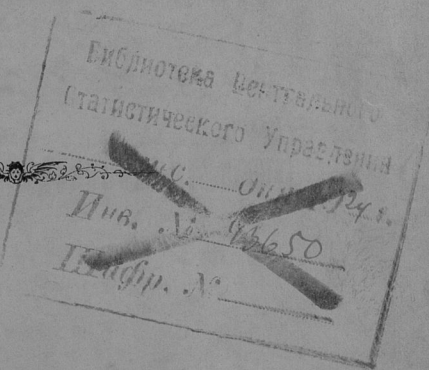 Библиотека Центрального
Статистического Управления
Инв. № 93650
Шифр. №